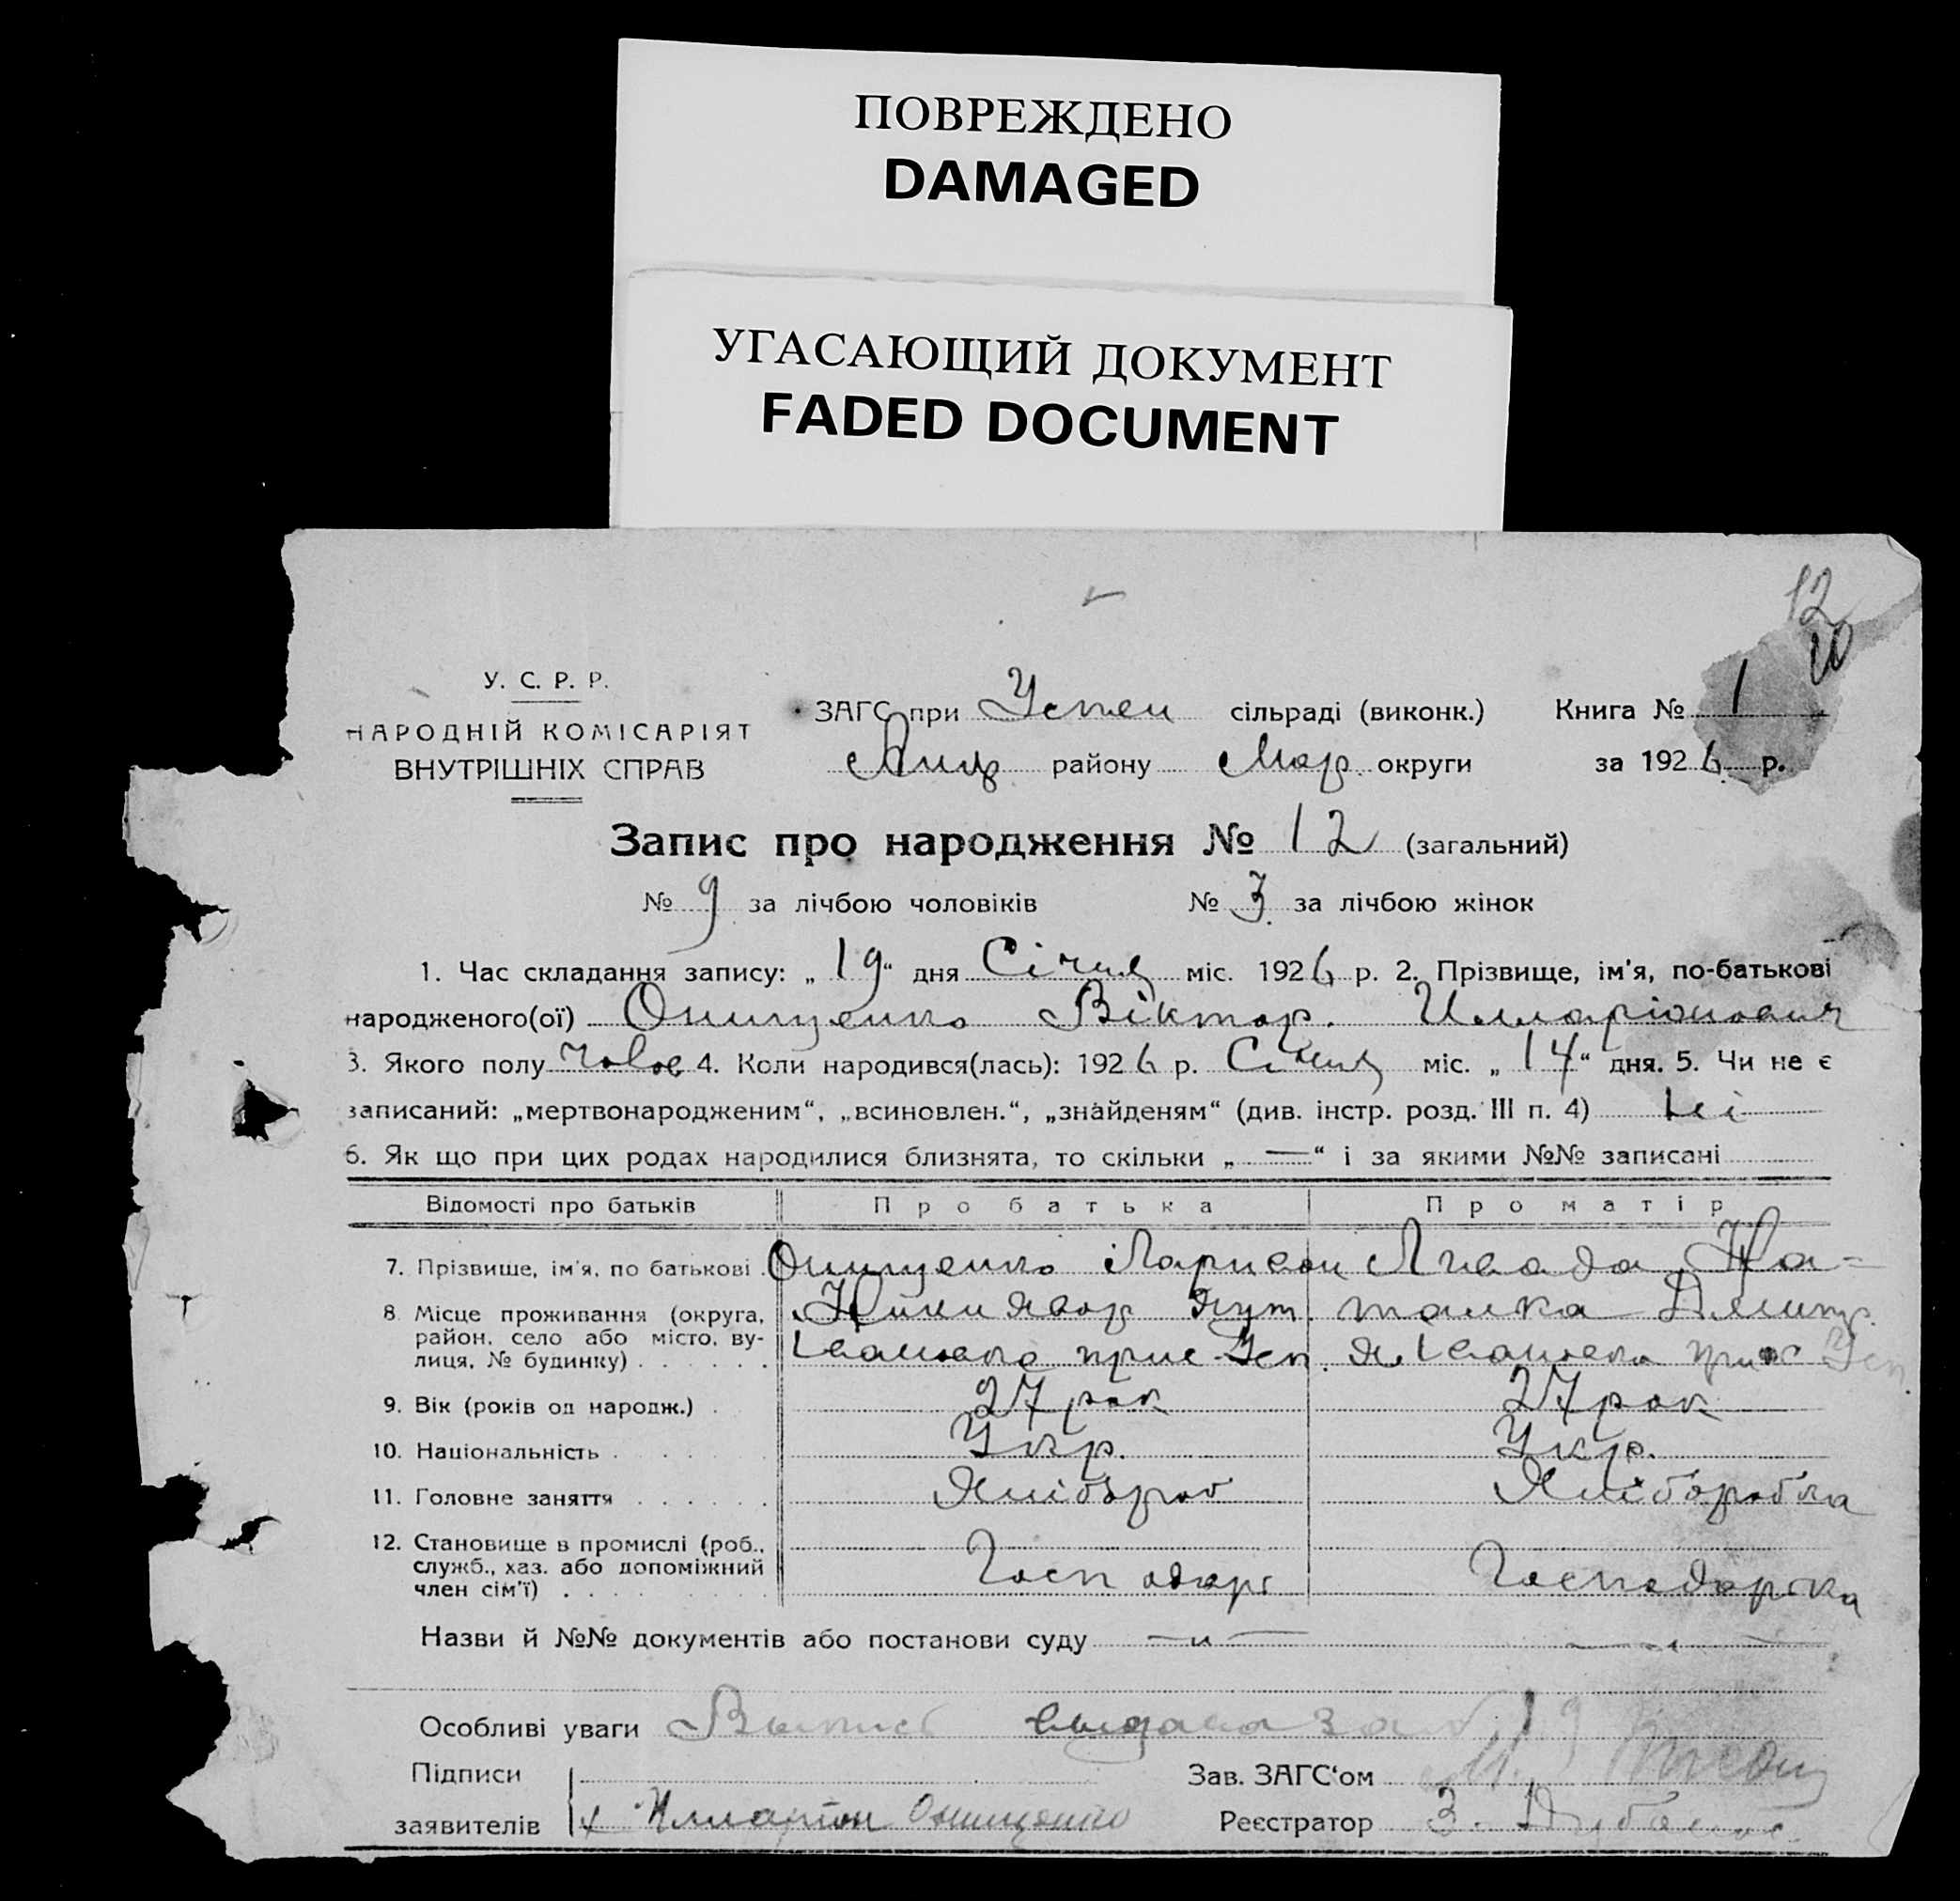 ПОВРЕЖДЕНО
DAMAGED
УГАСАЮЩИЙ ДОКУМЕНТ
FADED DOCUMENT
12
У. С. Р. Р.
ЗАГС при Успен сільраді (виконк.) Книга № 1
НАРОДНІЙ КОМІСАРІЯТ
району Мар. округи за 1926 р.
ВНУТРІШНІХ СПРАВ
Запис про народження № 12 (загальний)
№ 9 за лічбою чоловіків № 3 за лічбою жінок
1. Час складання запису: „19“ дня Січня міс. 1926 р. 2. Прізвище, ім'я, по-батькові
народженого(ої) Онищенко Віктор. Илларіонович
3. Якого полу 4. Коли народився(лась): 1926 р. Січня міс. „14“ дня. 5. Чи не є
записаний: „мертвонародженим“, „всиновлен.“, „знайденям“ (див. інстр. розд. III п. 4) ні
6. Як що при цих родах народилися близнята, то скільки „—“ і за якими №№ записані
Відомості про батьків Про батька Про матір
7. Прізвище, ім'я, по батькові Онищенко Ларивон На-
8. Місце проживання (округа, талка
район, село або місто, ву-
лиця, № будинку)
9. Вік (років од народж.) 27 рок 27 рок
10. Національність Укр. Укр.
11. Головне заняття Хліборoб Хліборобка
12. Становище в промислі (роб.,
служб., хаз. або допоміжний Господарь Господарька
член сім'ї)
Назви й №№ документів або постанови суду —„— —„—
Особливі уваги Выпись выдана за
Підписи Зав. ЗАГС‘ом
заявителів Илларион Онищенко Реєстратор З.